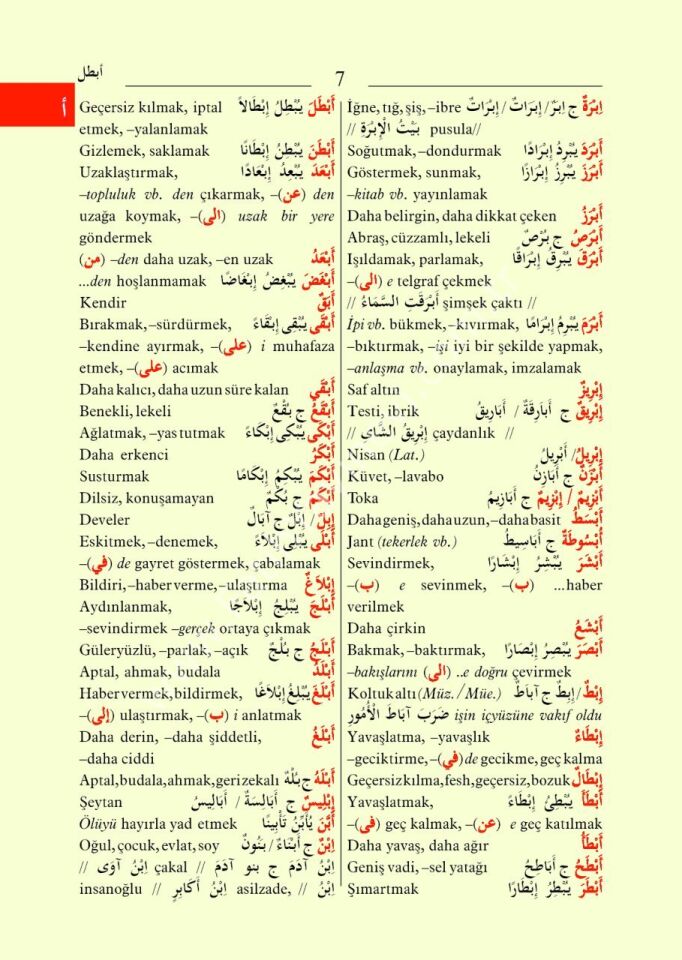 أبطل
7
أ
إِبْرَةٌ ج إِبَرٌ / إِبَرَاتٌ / إِبْرَاتٌ İğne, tığ, şiş, –ibre
// بَيْتُ الْإِبْرَةِ pusula//
أَبْرَدَ يُبْرِدُ إِبْرَادًا Soğutmak, –dondurmak
أَبْرَزَ يُبْرِزُ إِبْرَازًا Göstermek, sunmak,
–kitab vb. yayınlamak
أَبْرَزُ Daha belirgin, daha dikkat çeken
أَبْرَصُ ج بُرْصٌ Abraş, cüzzamlı, lekeli
أَبْرَقَ يُبْرِقُ إِبْرَاقًا Işıldamak, parlamak,
–(الى) e telgraf çekmek
// أَبْرَقَتِ السَّمَاءُ şimşek çaktı //
أَبْرَمَ يُبْرِمُ إِبْرَامًا İpi vb. bükmek, –kıvırmak,
–bıktırmak, –işi iyi bir şekilde yapmak,
–anlaşma vb. onaylamak, imzalamak
إِبْرِيزٌ Saf altın
إِبْرِيقٌ ج أَبَارِقَةٌ / أَبَارِيقُ Testi, ibrik
// إِبْرِيقُ الشَّايِ çaydanlık //
إِبْرِيلُ / أَبْرِيلُ Nisan (Lat.)
أَبْزَنٌ ج أَبَازِنُ Küvet, –lavabo
أَبْزِيمٌ / إِبْزِيمٌ ج أَبَازِيمُ Toka
أَبْسَطُ Daha geniş, daha uzun, –daha basit
أُبْسُوطَةٌ ج أَبَاسِيطُ Jant (tekerlek vb.)
أَبْشَرَ يُبْشِرُ إِبْشَارًا Sevindirmek,
–(ب) e sevinmek, –(ب) ...haber
verilmek
أَبْشَعُ Daha çirkin
أَبْصَرَ يُبْصِرُ إِبْصَارًا Bakmak, –baktırmak,
–bakışlarını (الى) ..e doğru çevirmek
إِبْطٌ / إِبِطٌ ج آبَاطٌ Koltuk altı (Müz. / Müe.)
ضَرَبَ آبَاطَ الْأُمُورِ işin içyüzüne vakıf oldu
إِبْطَاءٌ Yavaşlatma, –yavaşlık
–geciktirme, –(في) de gecikme, geç kalma
إِبْطَالٌ Geçersiz kılma, fesh, geçersiz, bozuk
أَبْطَأَ يُبْطِئُ إِبْطَاءً Yavaşlatmak,
–(في) geç kalmak, –(عن) e geç katılmak
أَبْطَأُ Daha yavaş, daha ağır
أَبْطَحُ ج أَبَاطِحُ Geniş vadi, –sel yatağı
أَبْطَرَ يُبْطِرُ إِبْطَارًا Şımartmak
أَبْطَلَ يُبْطِلُ إِبْطَالاً Geçersiz kılmak, iptal
etmek, –yalanlamak
أَبْطَنَ يُبْطِنُ إِبْطَانًا Gizlemek, saklamak
أَبْعَدَ يُبْعِدُ إِبْعَادًا Uzaklaştırmak,
–topluluk vb. den çıkarmak, –(عن) den
uzağa koymak, –(الى) uzak bir yere
göndermek
أَبْعَدُ (من) –den daha uzak, –en uzak
أَبْغَضَ يُبْغِضُ إِبْغَاضًا ...den hoşlanmamak
أَبَقٌ Kendir
أَبْقَى يُبْقِى إِبْقَاءً Bırakmak, –sürdürmek,
–kendine ayırmak, –(على) i muhafaza
etmek, –(على) acımak
أَبْقَى Daha kalıcı, daha uzun süre kalan
أَبْقَعُ ج بُقْعٌ Benekli, lekeli
أَبْكَى يُبْكِى إِبْكَاءً Ağlatmak, –yas tutmak
أَبْكَرُ Daha erkenci
أَبْكَمَ يُبْكِمُ إِبْكَامًا Susturmak
أَبْكَمُ ج بُكْمٌ Dilsiz, konuşamayan
إِبِلٌ / إِبْلٌ ج آبَالٌ Develer
أَبْلَى يُبْلِى إِبْلاَءً Eskitmek, –denemek,
–(في) de gayret göstermek, çabalamak
إِبْلاَغٌ Bildiri, –haber verme, –ulaştırma
أَبْلَجَ يُبْلِجُ إِبْلاَجًا Aydınlanmak,
–sevindirmek –gerçek ortaya çıkmak
أَبْلَجُ ج بُلْجٌ Güleryüzlü, –parlak, –açık
أَبْلَدُ Aptal, ahmak, budala
أَبْلَغَ يُبْلِغُ إِبْلاَغًا Haber vermek, bildirmek,
–(إلى) ulaştırmak, –(ب) i anlatmak
أَبْلَغُ Daha derin, –daha şiddetli,
–daha ciddi
أَبْلَهُ ج بُلْهٌ Aptal, budala, ahmak, geri zekalı
إِبْلِيسُ ج أَبَالِسَةٌ / أَبَالِيسُ Şeytan
أَبَّنَ يُأَبِّنُ تَأْبِينًا Ölüyü hayırla yad etmek
اِبْنٌ ج أَبْنَاءٌ / بَنُونٌ Oğul, çocuk, evlat, soy
اِبْنُ آدَمَ ج بنو آدَمَ // اِبْنُ آوَى çakal //
insanoğlu // اِبْنُ أَكَابِرٍ asilzade, // اِبْنُ